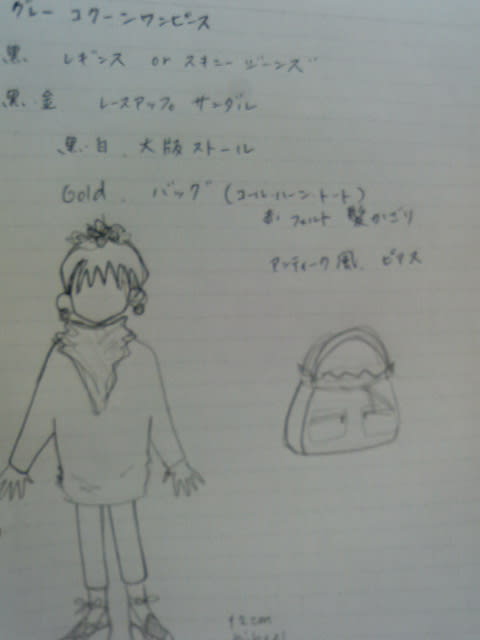 グレー コクーンワンピース
黒 レギンス or スキニージーンズ
黒・金 レースアップ サンダル
黒・白、大版ストール
Gold、バッグ(コール・ハーン・トート)
赤、フェルト 髪かざり
アンティーク風、ピアス
12cm